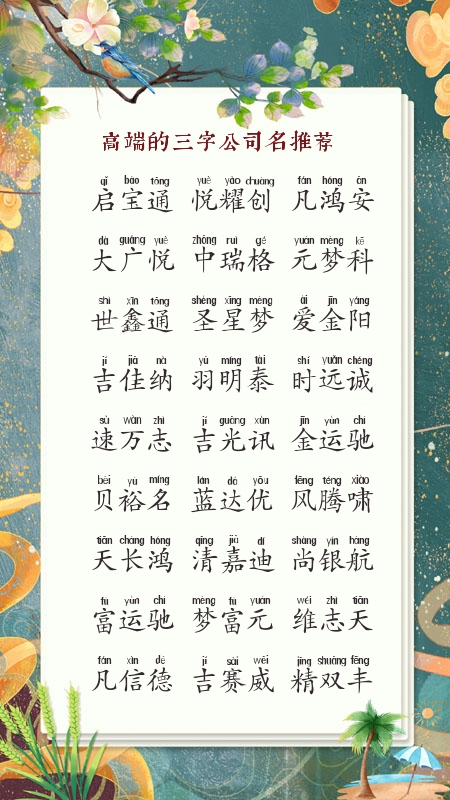 高端的三字公司名推荐
qǐ bǎo tōng yuè yào chuàng fán hóng ān
启宝通 悦耀创 凡鸿安
dà guǎng yuè zhōng ruì gé yuán mèng kē
大广悦 中瑞格 元梦科
shì xīn tōng shèng xīng mèng ài jīn yáng
世鑫通 圣星梦 爱金阳
jí jiā nà yǔ míng tài shí yuǎn chéng
吉佳纳 羽明泰 时远诚
sù wàn zhì jí guāng xùn jīn yùn chí
速万志 吉光讯 金运驰
bèi yù míng lán dá yōu fēng téng xiào
贝裕名 蓝达优 风腾啸
tiān cháng hóng qīng jiā dí shàng yín háng
天长鸿 清嘉迪 尚银航
fù yùn chí mèng fù yuán wéi zhì tiān
富运驰 梦富元 维志天
fán xìn dé jí sài wēi jīng shuāng fēng
凡信德 吉赛威 精双丰